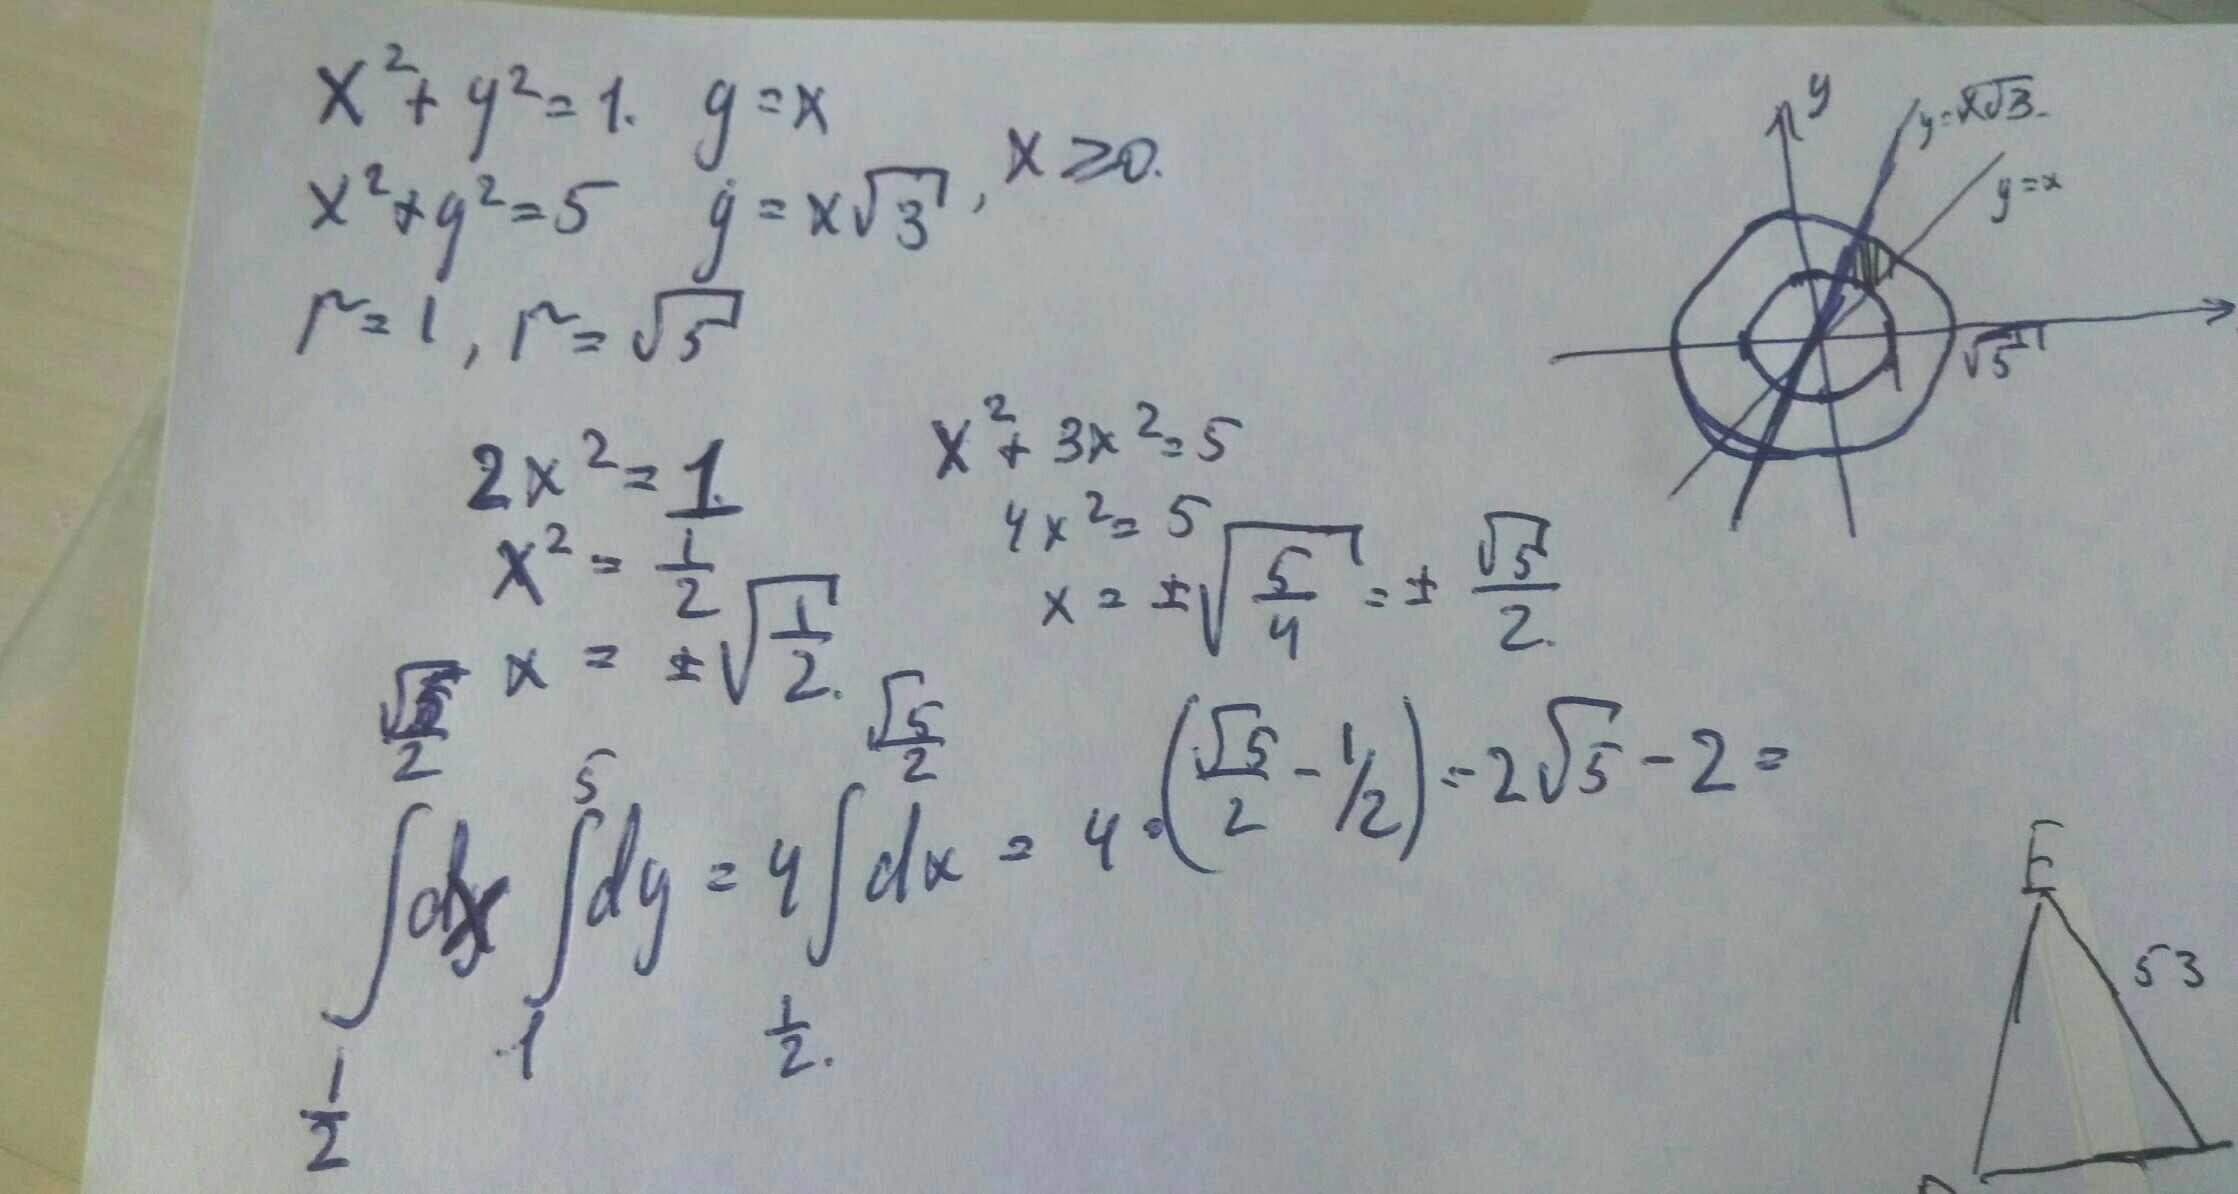 x² + y² = 1. y = x
x² + y² = 5 y = x√3, x ≥ 0.
r = 1, r = √5
2x² = 1
x² = 1/2
x = ±√(1/2).
x² + 3x² = 5
4x² = 5
x = ±√(5/4) = ± √5/2.
∫_{1/2}^{√5/2} dx ∫_1^5 dy = 4 ∫_{1/2.}^{√5/2} dx = 4·(√5/2 - 1/2) = 2√5 - 2 =
y
y = x√3
y = x
√5
E
53